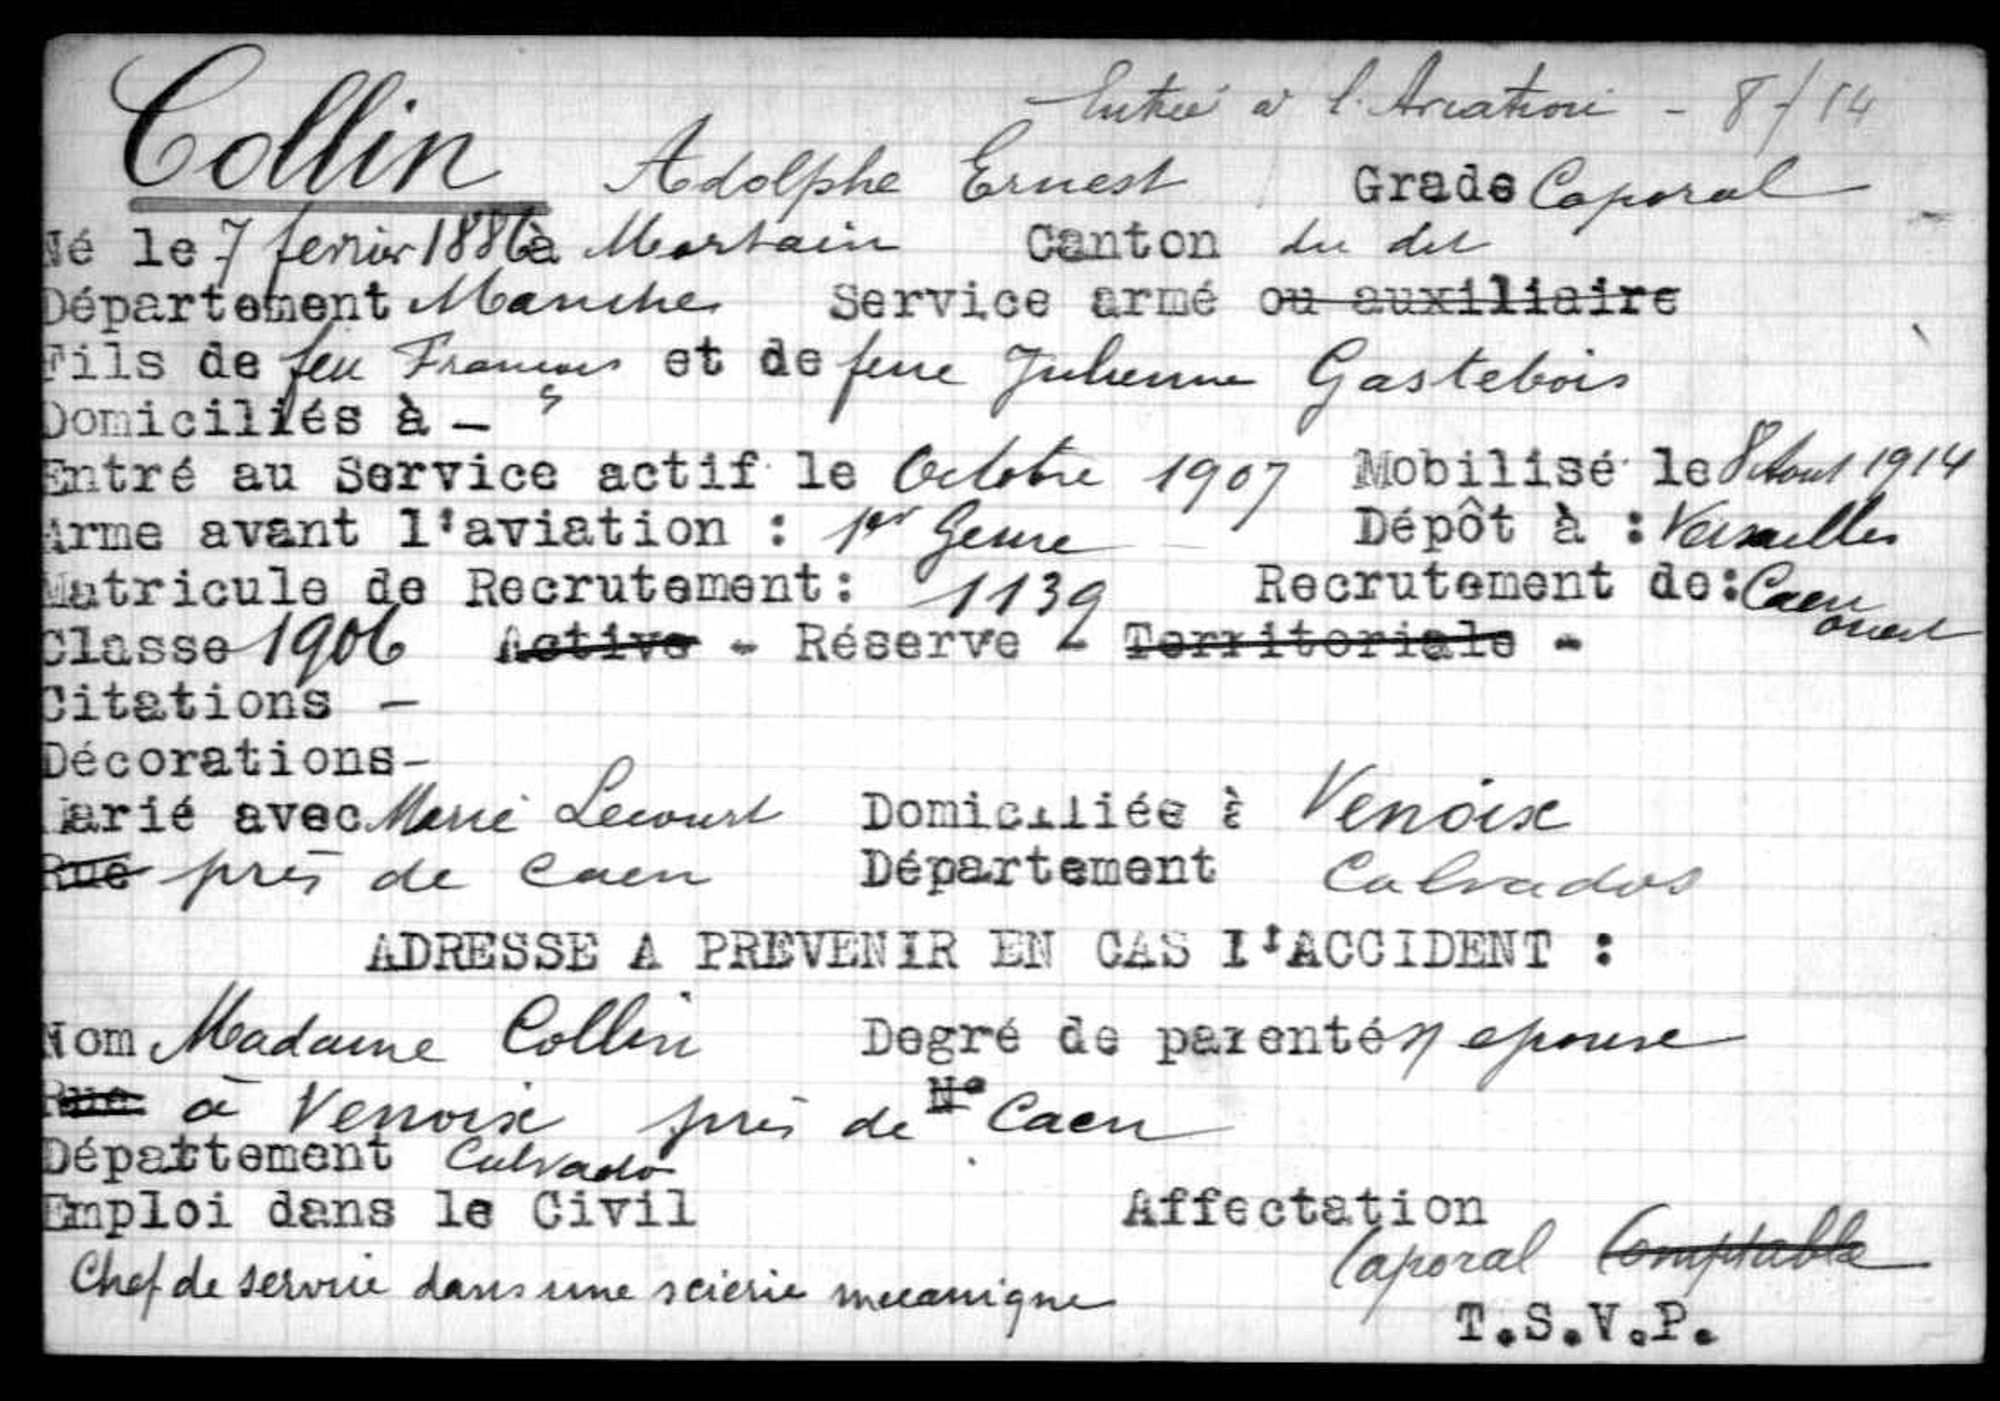 Entrée à l'Aviation - 8/14
Collin Adolphe Ernest Grade Caporal
Né le 7 fevrier 1886 à Mortain Canton du dit
Département Manche Service armé ou auxiliaire
Fils de feu François et de feue Julienne Gastebois
Domiciliés à -
Entré au Service actif le Octobre 1907 Mobilisé le 8 Aout 1914
Arme avant l'aviation : 1er Genie Dépôt à : Versailles
Matricule de Recrutement: 1139 Recrutement de: Caen
Classe 1906 Active - Réserve - Territoriale - ouest
Citations -
Décorations -
Marié avec Marie Lecourt Domiciliée à Venoix
Rue près de Caen Département Calvados
ADRESSE A PREVENIR EN CAS D'ACCIDENT :
Nom Madame Collin Degré de parenté epouse
Rue à Venoix près de N° Caen
Département Calvados
Emploi dans le Civil Affectation
Chef de service dans une scierie mecanique Caporal Comptable
T.S.V.P.